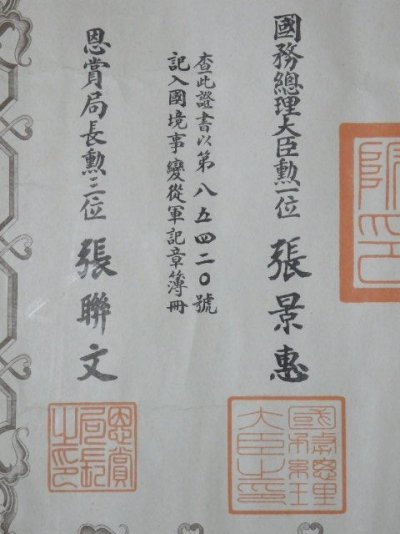 國務總理大臣勲一位 張景惠
查此證書以第八五四二〇號
記入國境事變從軍記章簿冊
恩賞局長勲三位 張聯文
國務總理
大臣之印
恩賞
局長
之印